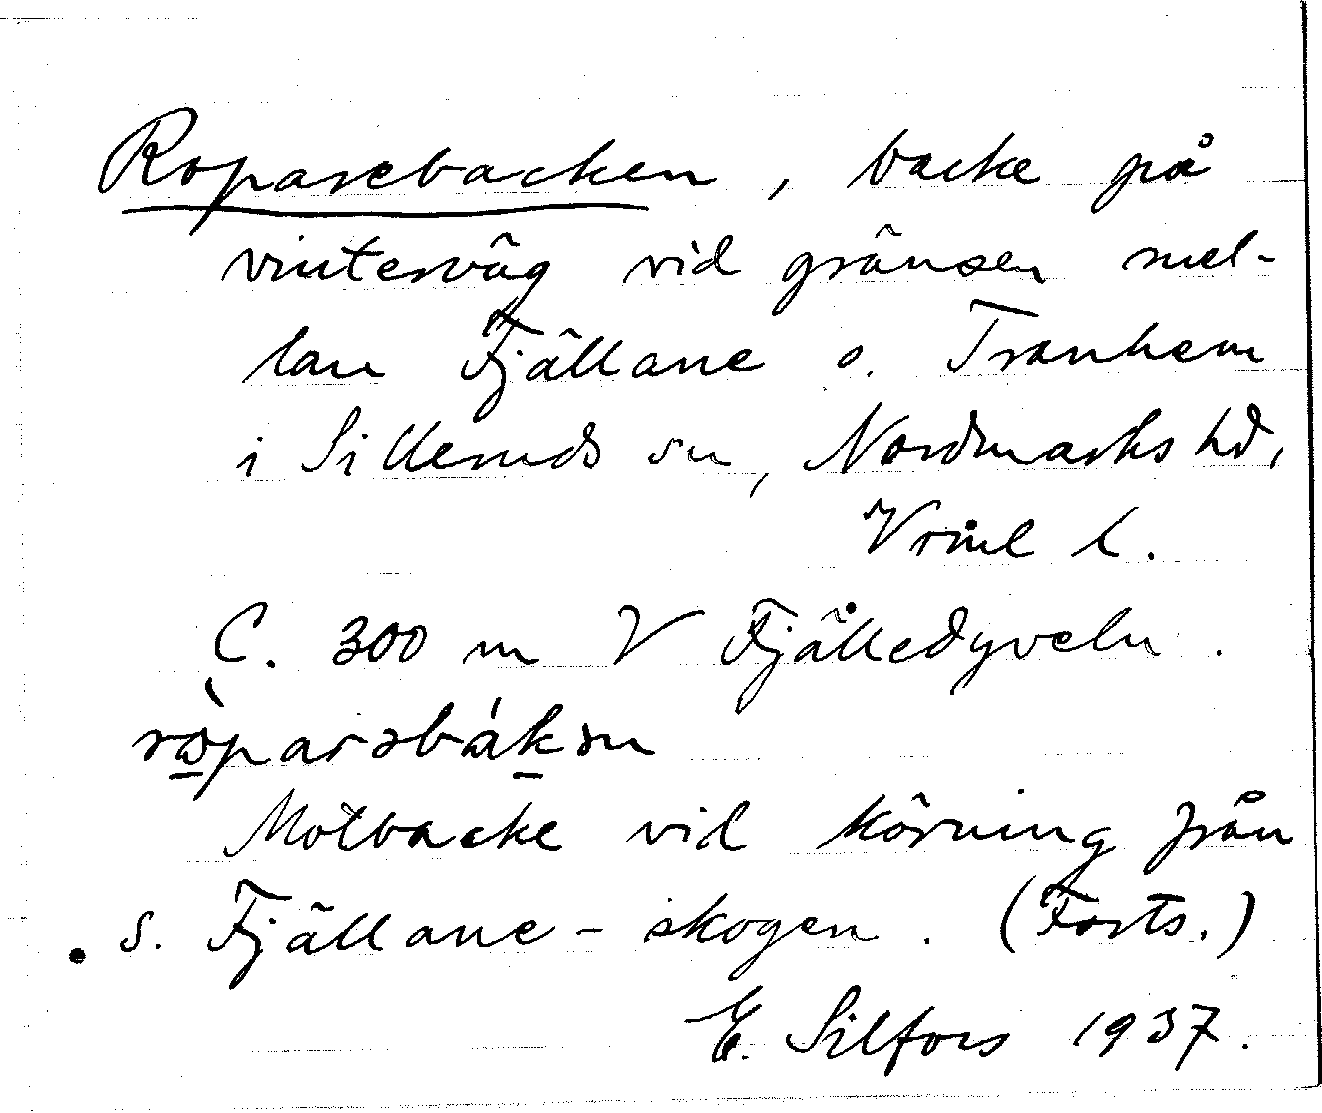 Roparebacken, backe på
vinterväg vid gränsen mel-
lan Fjällane o. Tranhem
i Silleruds sn, Nordmarks hd,
Vrml l.
C. 300 m V Fjälledyveln.
Motbacke vid körning från
s. Fjällane-skogen. (Forts.)
E. Silfors 1937.